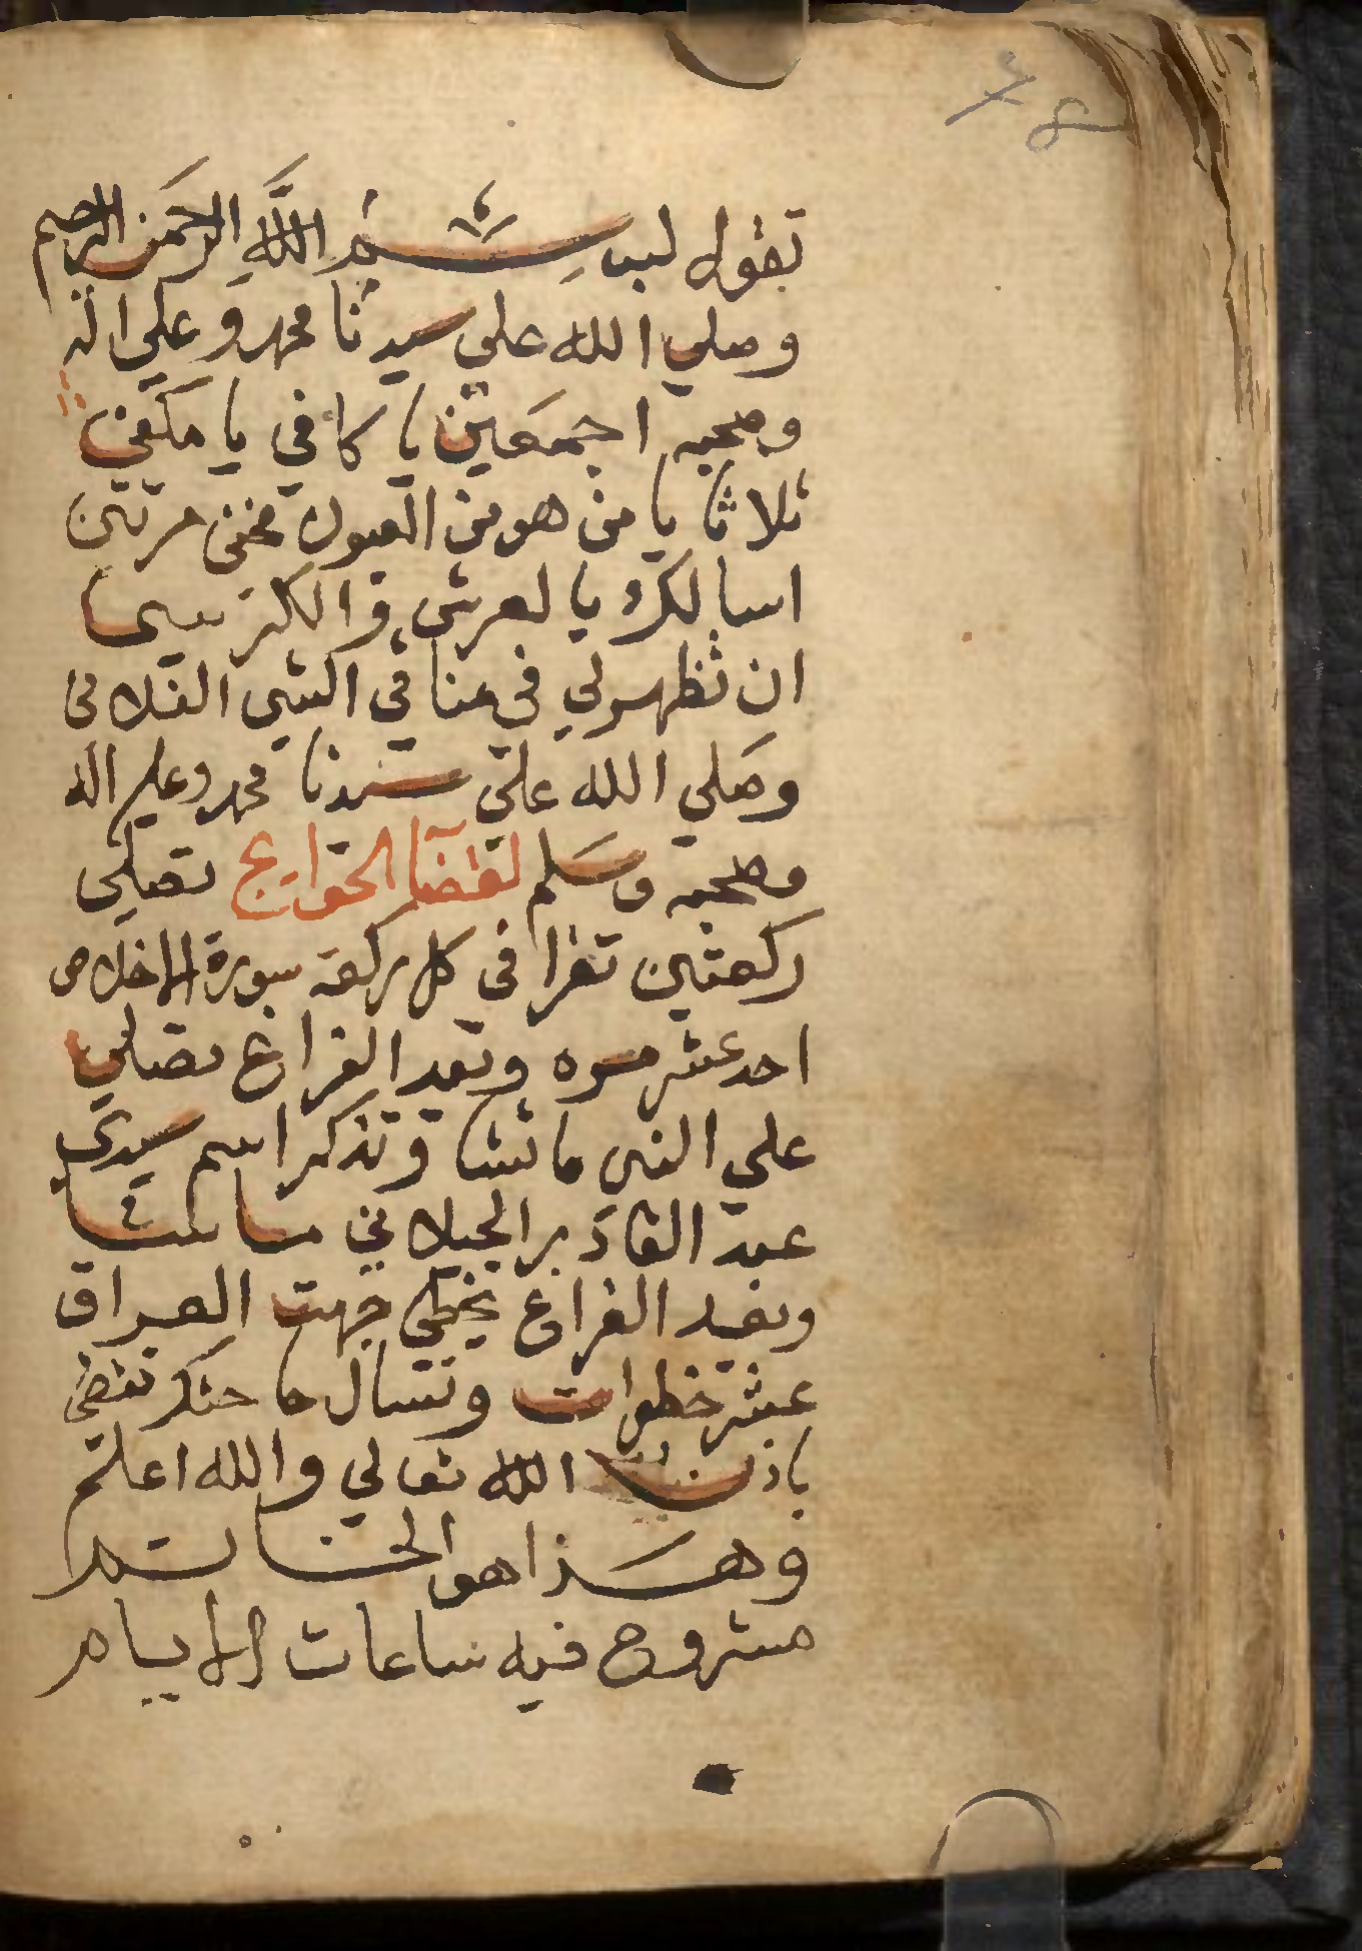 تقول بسم الله الرحمن الرحيم
وصلي الله علي سيدنا محمد وعلي اله
وصحبه اجمعين يا كافي يا مكفي
ثلاثا يا من هو من العيون مخفي مرتين
اسالك يا لعرش والكرسي
ان تظهرلي في منا في الشي الفلاني
وصلي الله علي سيدنا محمد وعلي اله
وصحبه وسلم لقضا الحوايج تصلي
ركعتين تقرا في كل ركعة سورة الاخلاص
احد عشر مره وبعد الفراغ تصلي
علي النبي ما تشا وتذكر اسم سيدي
عبد القادر الجيلاني ما تشا
وبعد الفراغ تخطي جهت العراق
عشر خطوات وتسال حاجتك تقضي
باذن الله تعالي والله اعلم
وهذا هو الخاتم
مشروح فيه ساعات الايام